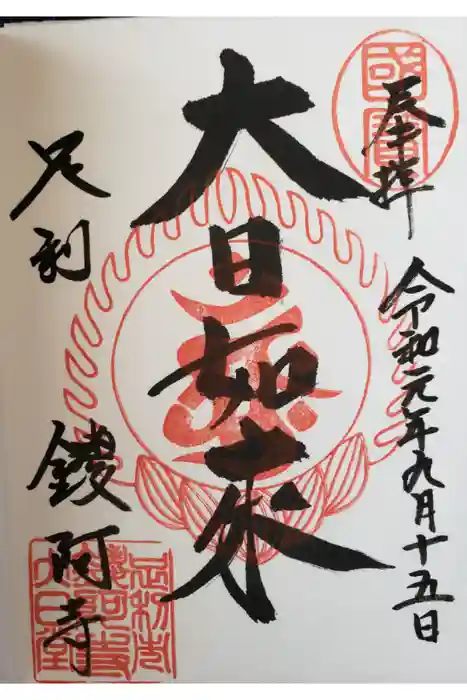 奉拝
國寶
令和元年九月十五日
大日如来
足利
鑁阿寺